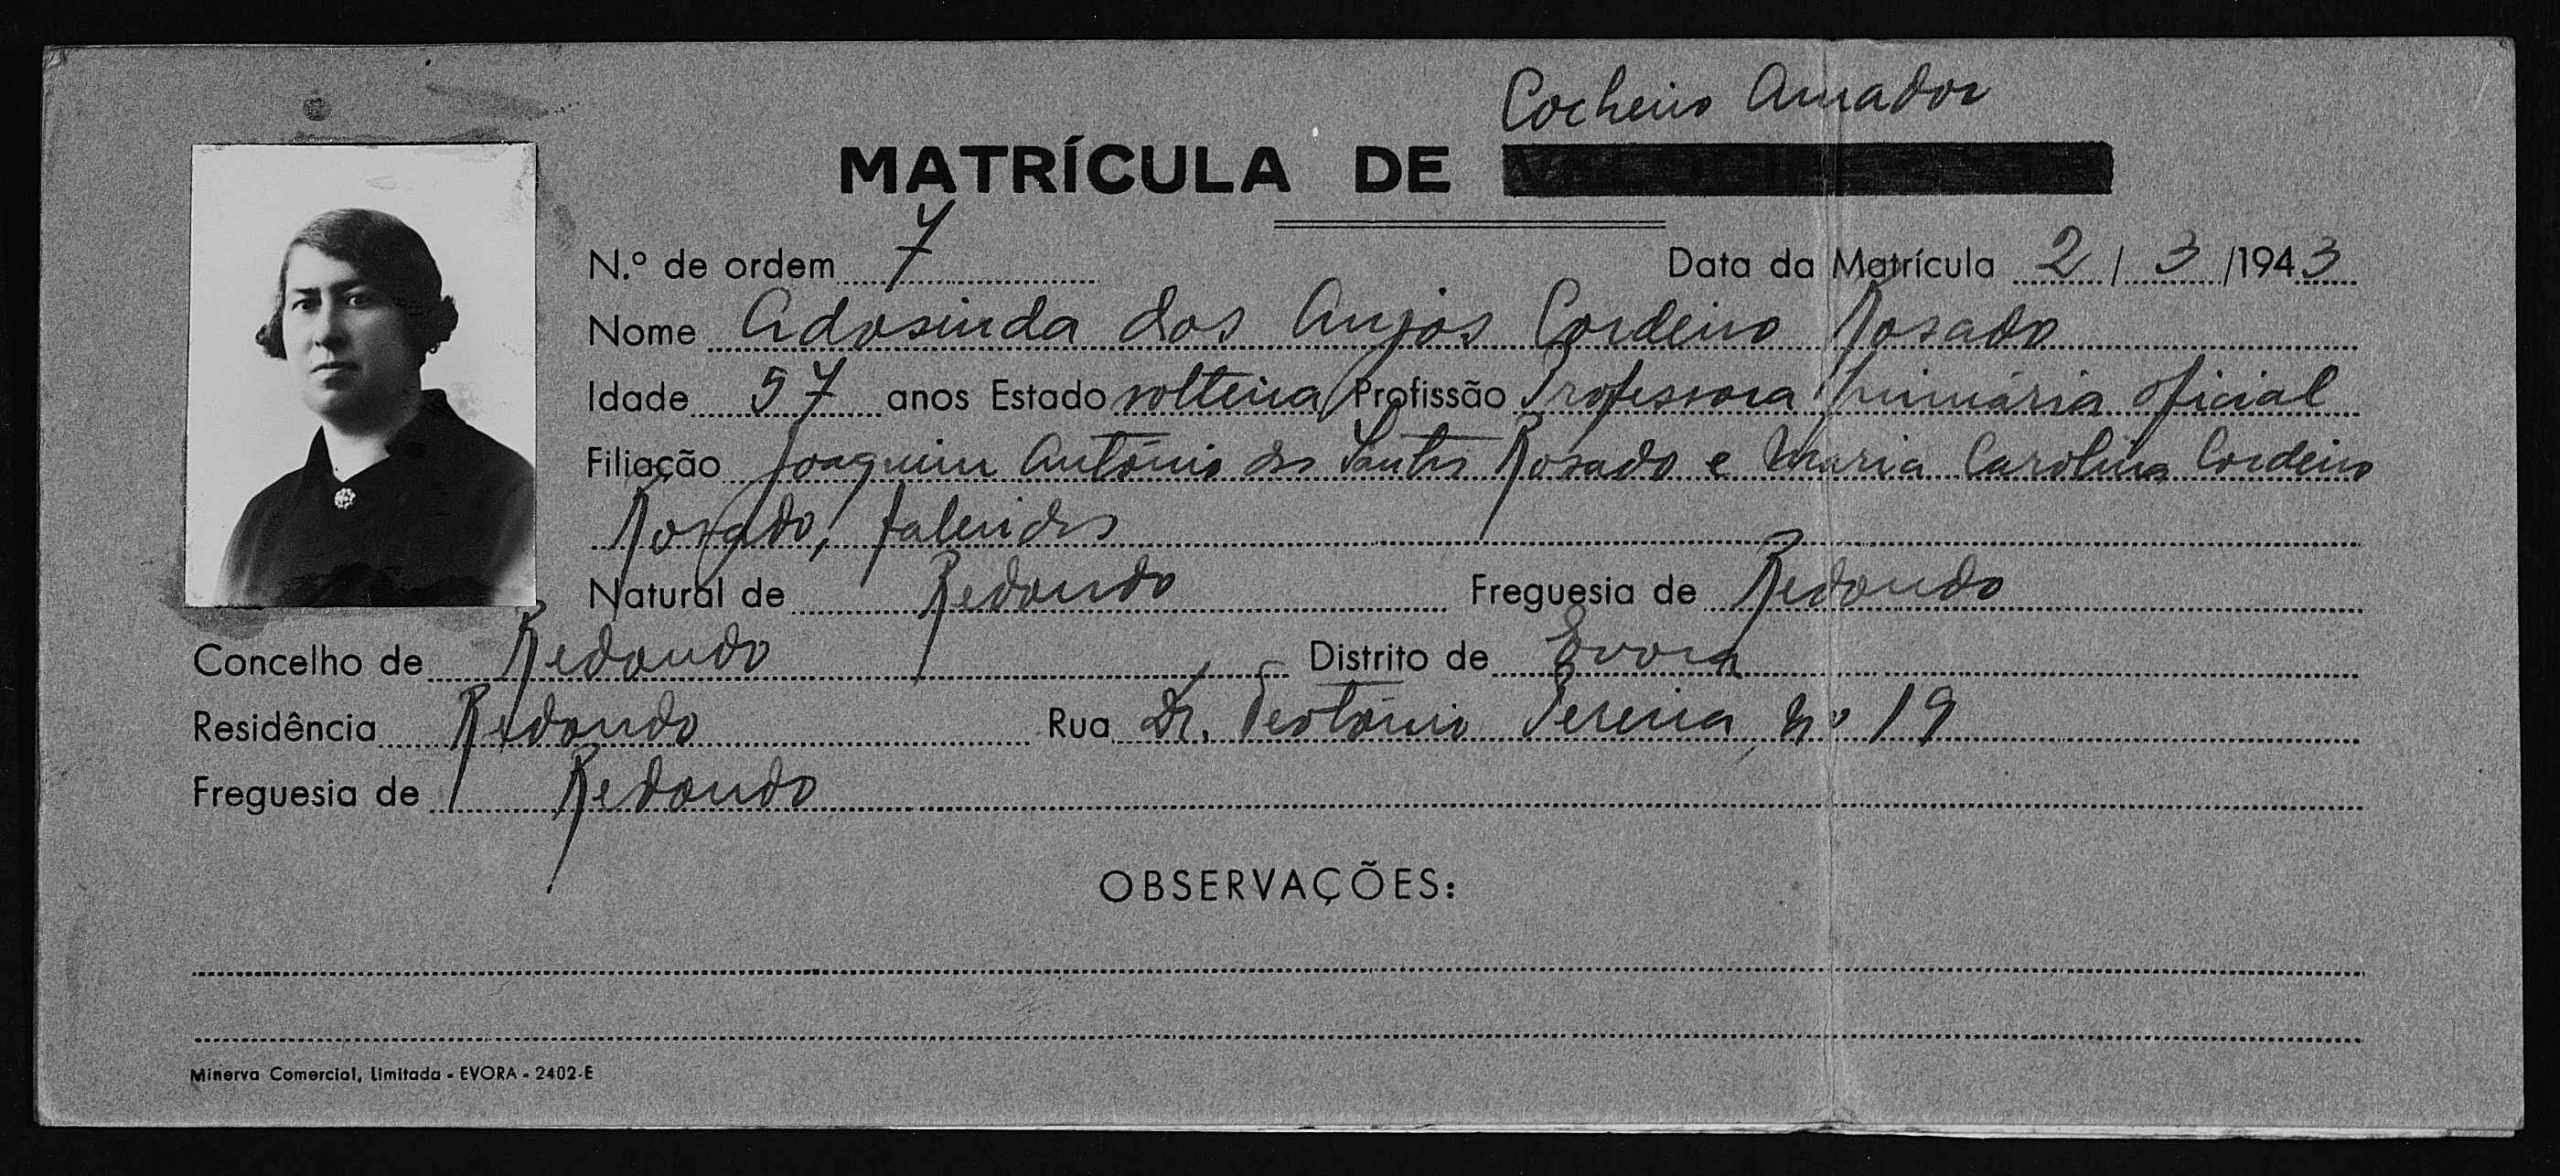 Cocheiro Amador
MATRÍCULA DE
N.º de ordem 7 Data da Matrícula 2 / 3 /1943
Nome Adosinda dos Anjos Cordeiro Rosado
Idade 57 anos Estado solteira Profissão Professora primária oficial
Filiação Joaquim António dos Santos Rosado e Maria Carolina Cordeiro
Rosado, falecidos
Natural de Redondo Freguesia de Redondo
Concelho de Redondo Distrito de Evora
Residência Redondo Rua Dr. Teotónio Pereira, nº 19
Freguesia de Redondo
OBSERVAÇÕES:
Minerva Comercial, Limitada - EVORA - 2402-E